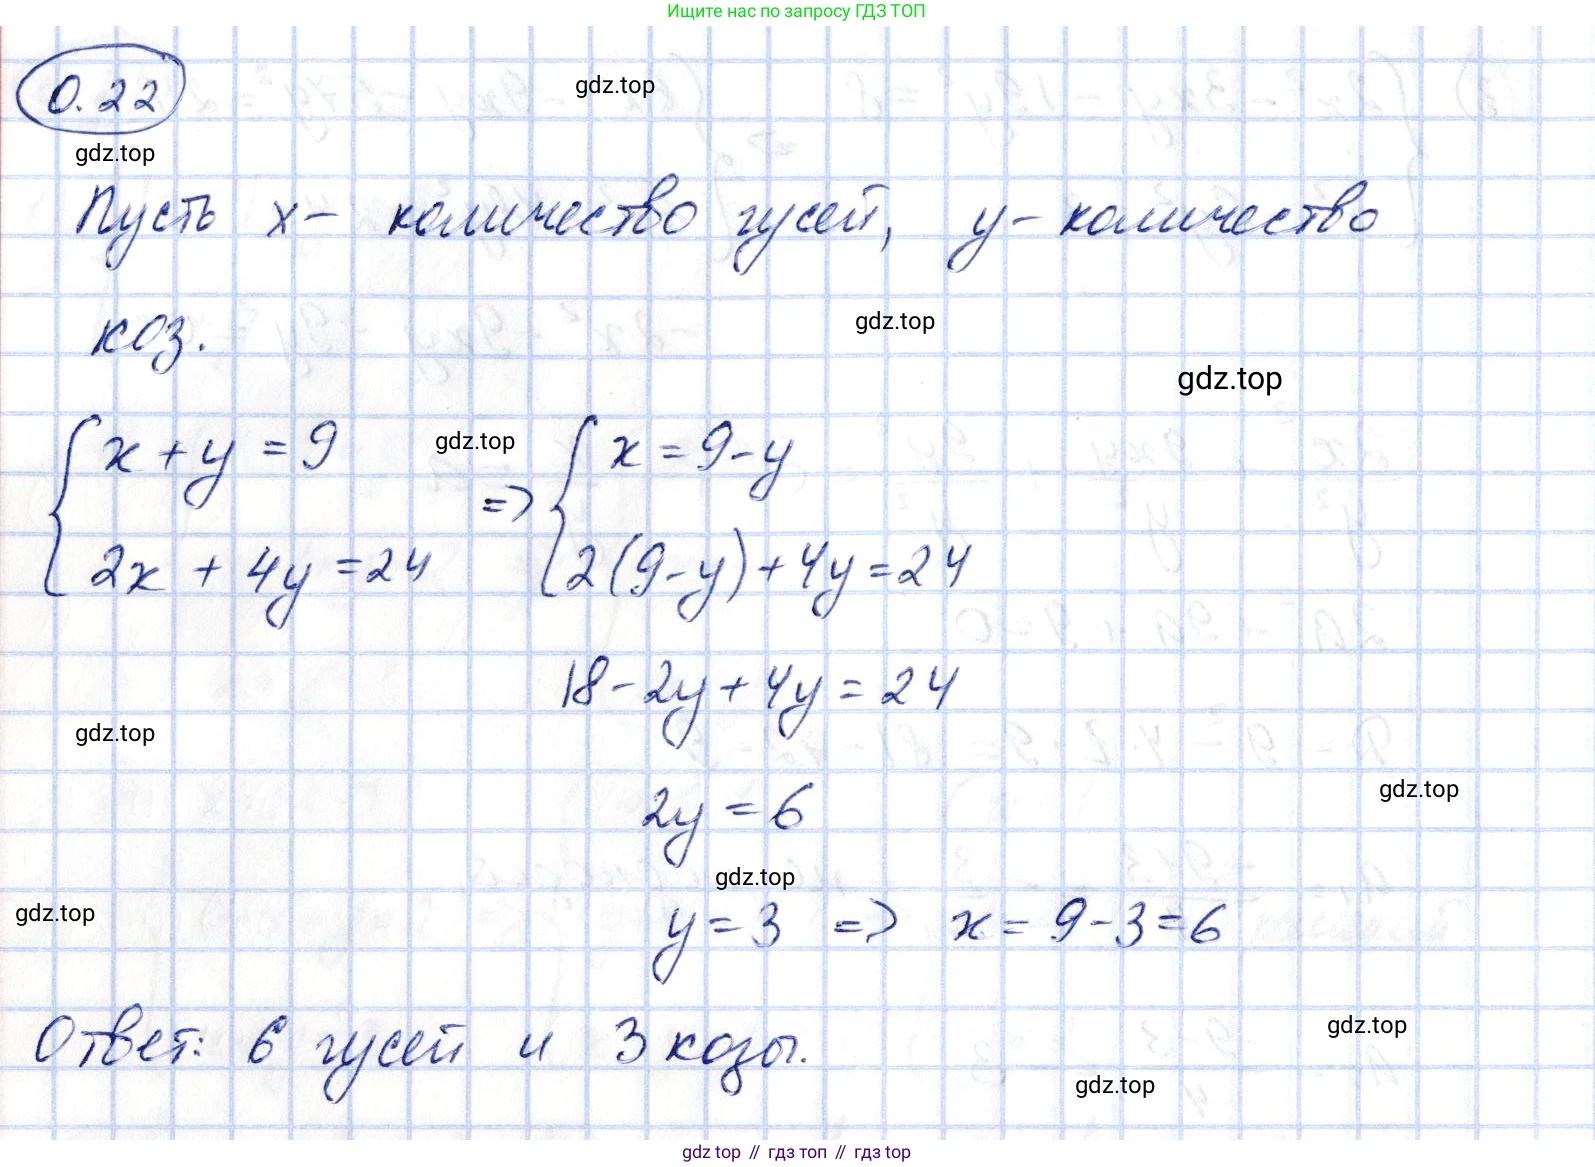 Ищите нас по запросу ГДЗ ТОП
0.22
gdz.top
gdz.top
Пусть x - количество гусей, y - количество
коз.
gdz.top
gdz.top
{ x + y = 9 => { x = 9 - y
gdz.top
2x + 4y = 24 2(9 - y) + 4y = 24
18 - 2y + 4y = 24
gdz.top
2y = 6
gdz.top
gdz.top
gdz.top
y = 3 => x = 9 - 3 = 6
Ответ: 6 гусей и 3 козы.
gdz.top
gdz.top
gdz top // гдз топ // гдз top